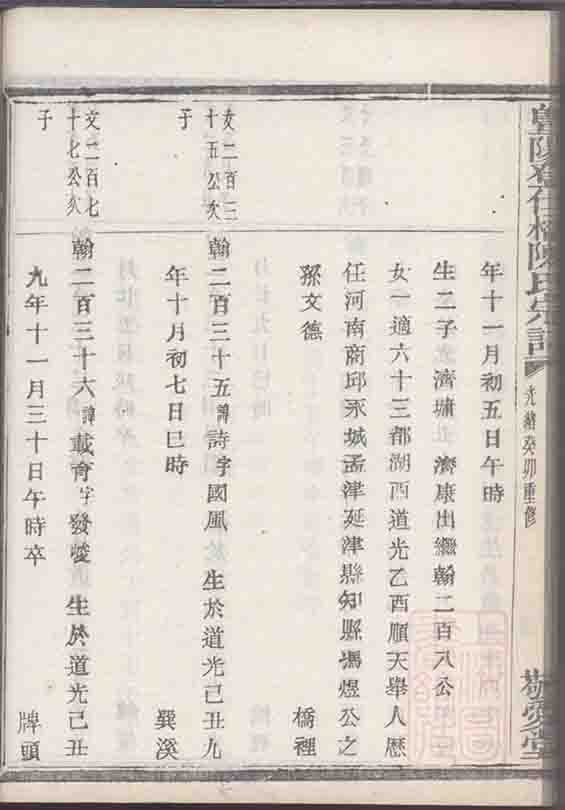 暨陽 宅 陳氏宗譜
光緒癸卯重修
敬愛堂
年十一月初五日午時
生二子濟 濟康出繼翰二百八公
女一適六十三都湖西道光乙酉順天舉人歷
任河南商邱永城孟津延津縣知縣 煜公之
孫文德
橋裡
文二百三
十五公次
子
翰二百三十五諱詩字國風 生於道光己丑九
年十月初七日巳時
巽溪
文二百七
十七公次
子
翰二百三十六諱載育字發 生於道光己丑
九年十一月三十日午時卒
牌頭